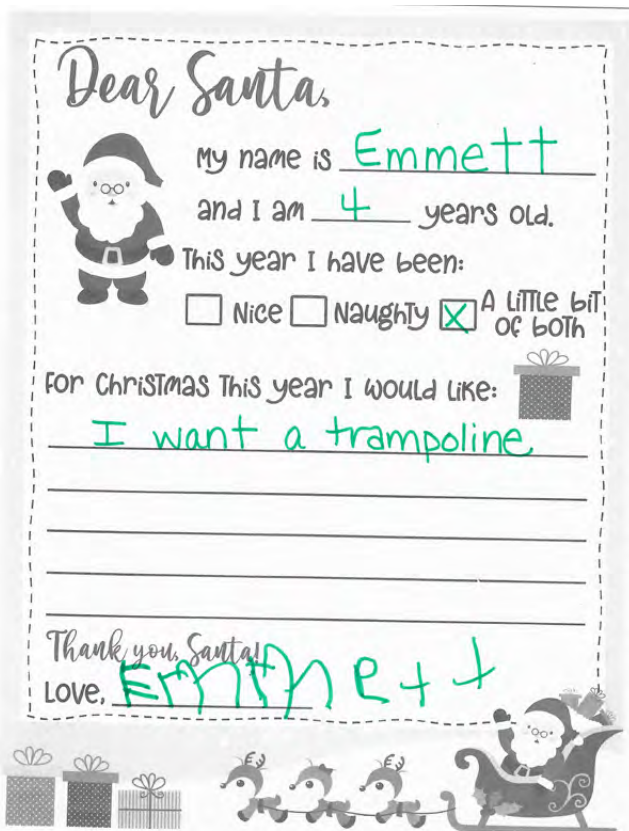 Dear Santa,
My name is Emmett
and I am 4 years old.
This year I have been:
Nice Naughty X A little bit
of both
For Christmas this year I would like:
I want a trampoline
Thank you, Santa!
Love, Emmett